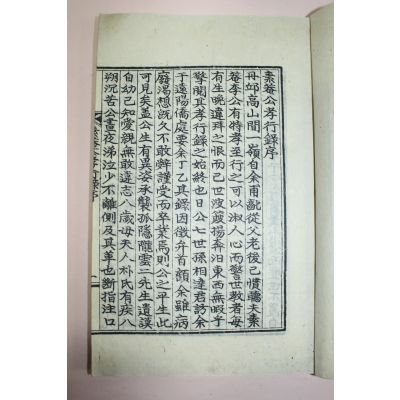 素菴公孝行錄序
丹邱高山間一嶺自余甫齔從父老後已慣聽夫素
菴李公有特孝至行之可以淑人心而警世敎者每
有生晩違拜之恨而已世波簸揚奔汨東西無暇乎
擎閱其孝行錄之始終也日公七世孫相達君訪余
于遠陽僑庭要余丁乙其錄因徵弁首顧余雖病
廢渴想旣久不敢辭謹受而卒業焉則公之平生此
可見矣盖公生有異姿承襲孤隱隴雲二先生遺謨
自幼已知愛親無敢違志八歲母夫人朴氏有疾八
朔沉苦公晝夜涕泣少不離側及其革也斷指注口
孝行錄序
一